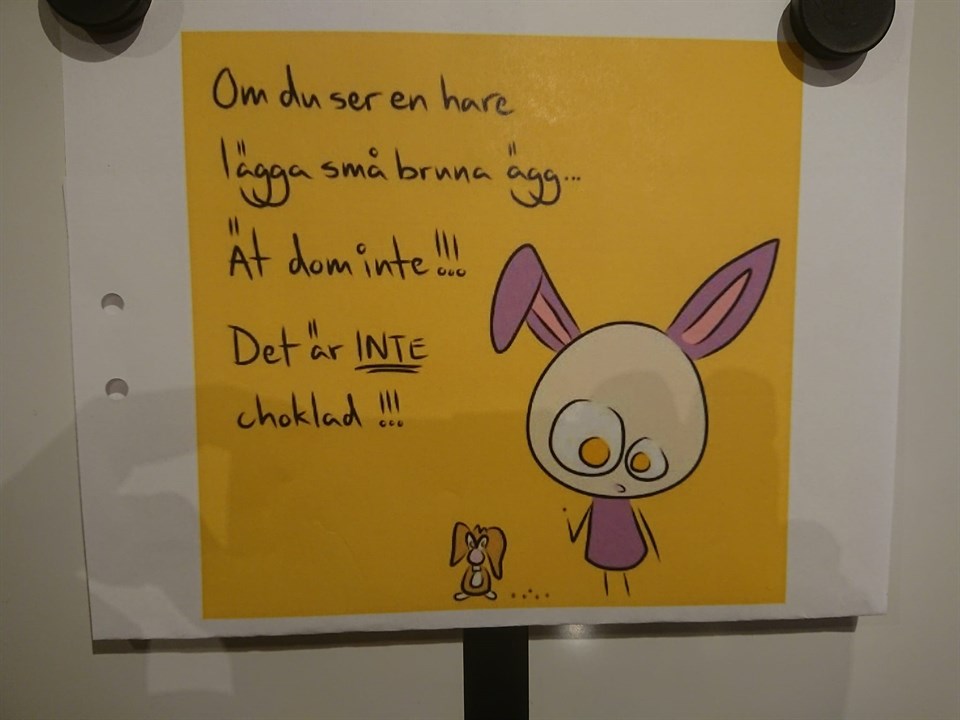 Om du ser en hare
lägga små bruna ägg...
Ät dom inte!!!
Det är INTE
choklad!!!